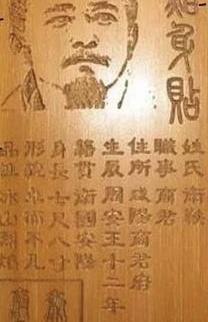 身貼
姓氏衛鞅
職事商君
住所咸陽商君府
生辰周安王十二年
籍貫衛國安陽
身長七尺八寸
形貌卓爾不凡
冰山烈焰